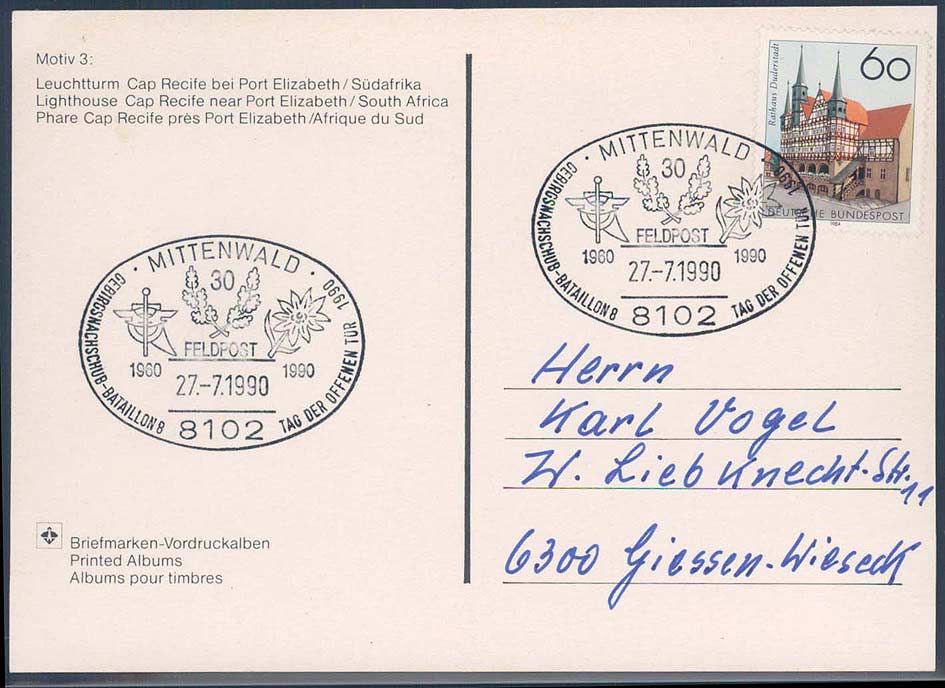 Motiv 3:
Leuchtturm Cap Recife bei Port Elizabeth/Südafrika
Lighthouse Cap Recife near Port Elizabeth/South Africa
Phare Cap Recife près Port Elizabeth/Afrique du Sud
Rathaus Duderstadt
60
DEUTSCHE BUNDESPOST
1984
· MITTENWALD ·
30
FELDPOST
1960 1990
27.-7.1990
8102
GEBIRGSNACHSCHUB-BATAILLON 8
TAG DER OFFENEN TÜR 1990
· MITTENWALD ·
30
FELDPOST
1960 1990
27.-7.1990
8102
GEBIRGSNACHSCHUB-BATAILLON 8
TAG DER OFFENEN TÜR 1990
Herrn
Karl Vogel
W. Liebknecht-Str.
11
6300 Giessen-Wieseck
Briefmarken-Vordruckalben
Printed Albums
Albums pour timbres